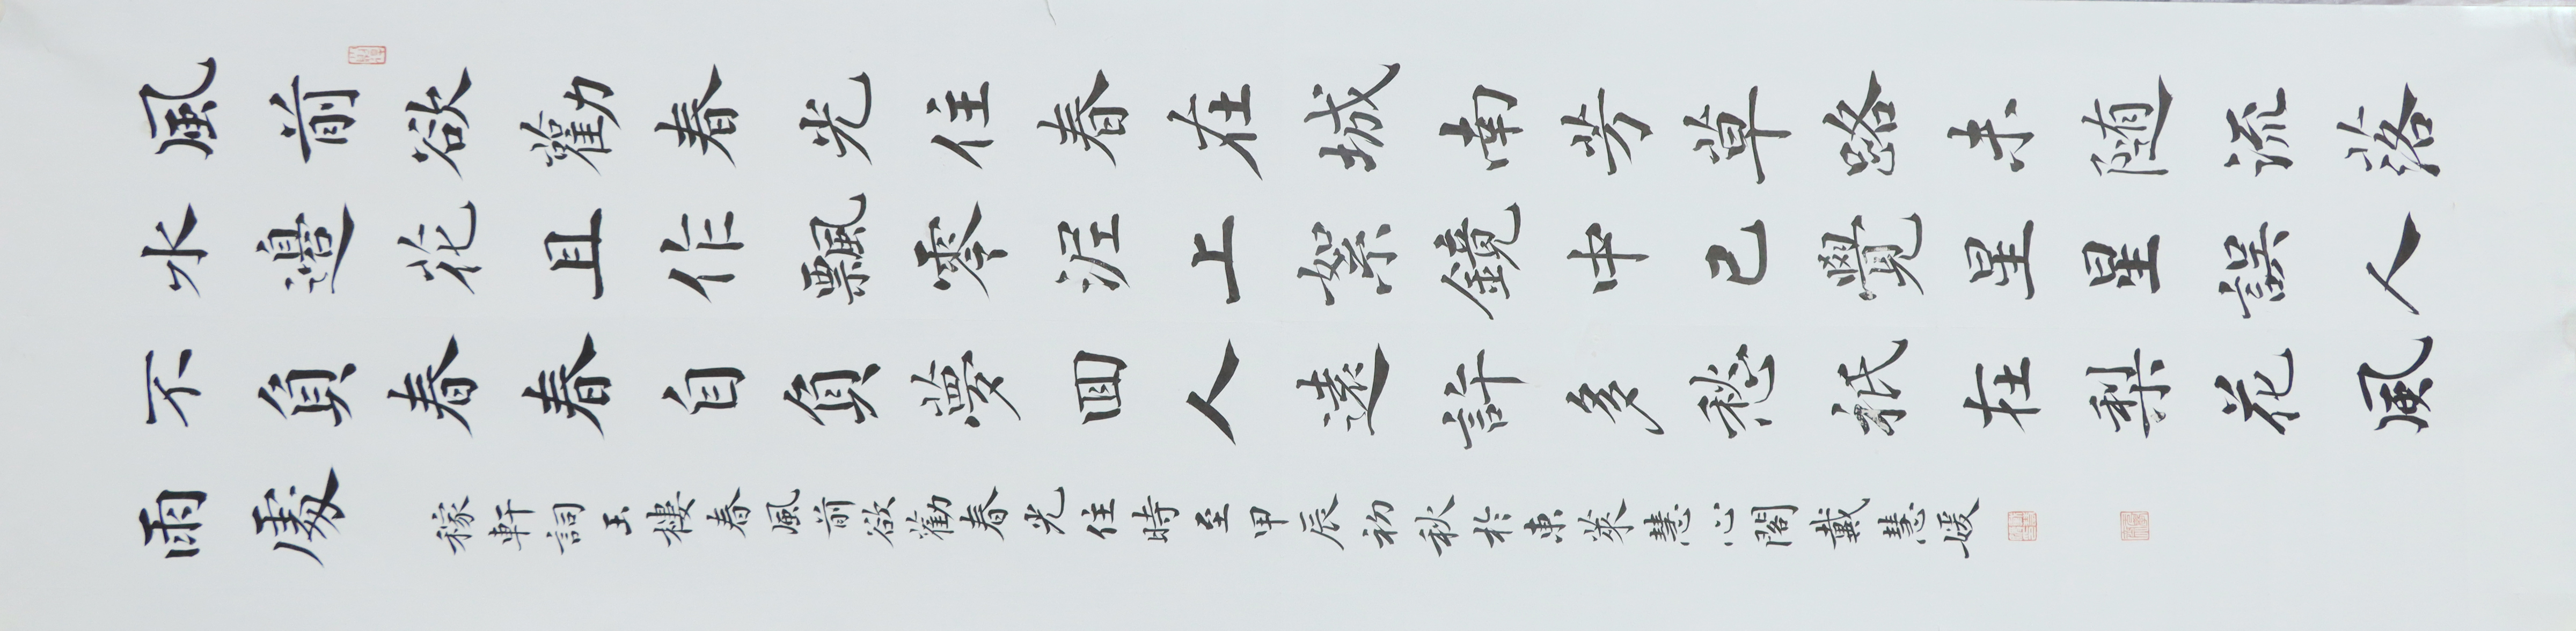 風前欲勸春光住春在城南芳草路未随流落
水邊花且作飄零泥上絮鏡中已覺星星誤人
不負春春自負夢回人遠許多愁祇在梨花風
雨處
稼軒詞玉樓春風前欲勸春光住時至甲辰初秋於東萊慧心閣戴慧媛